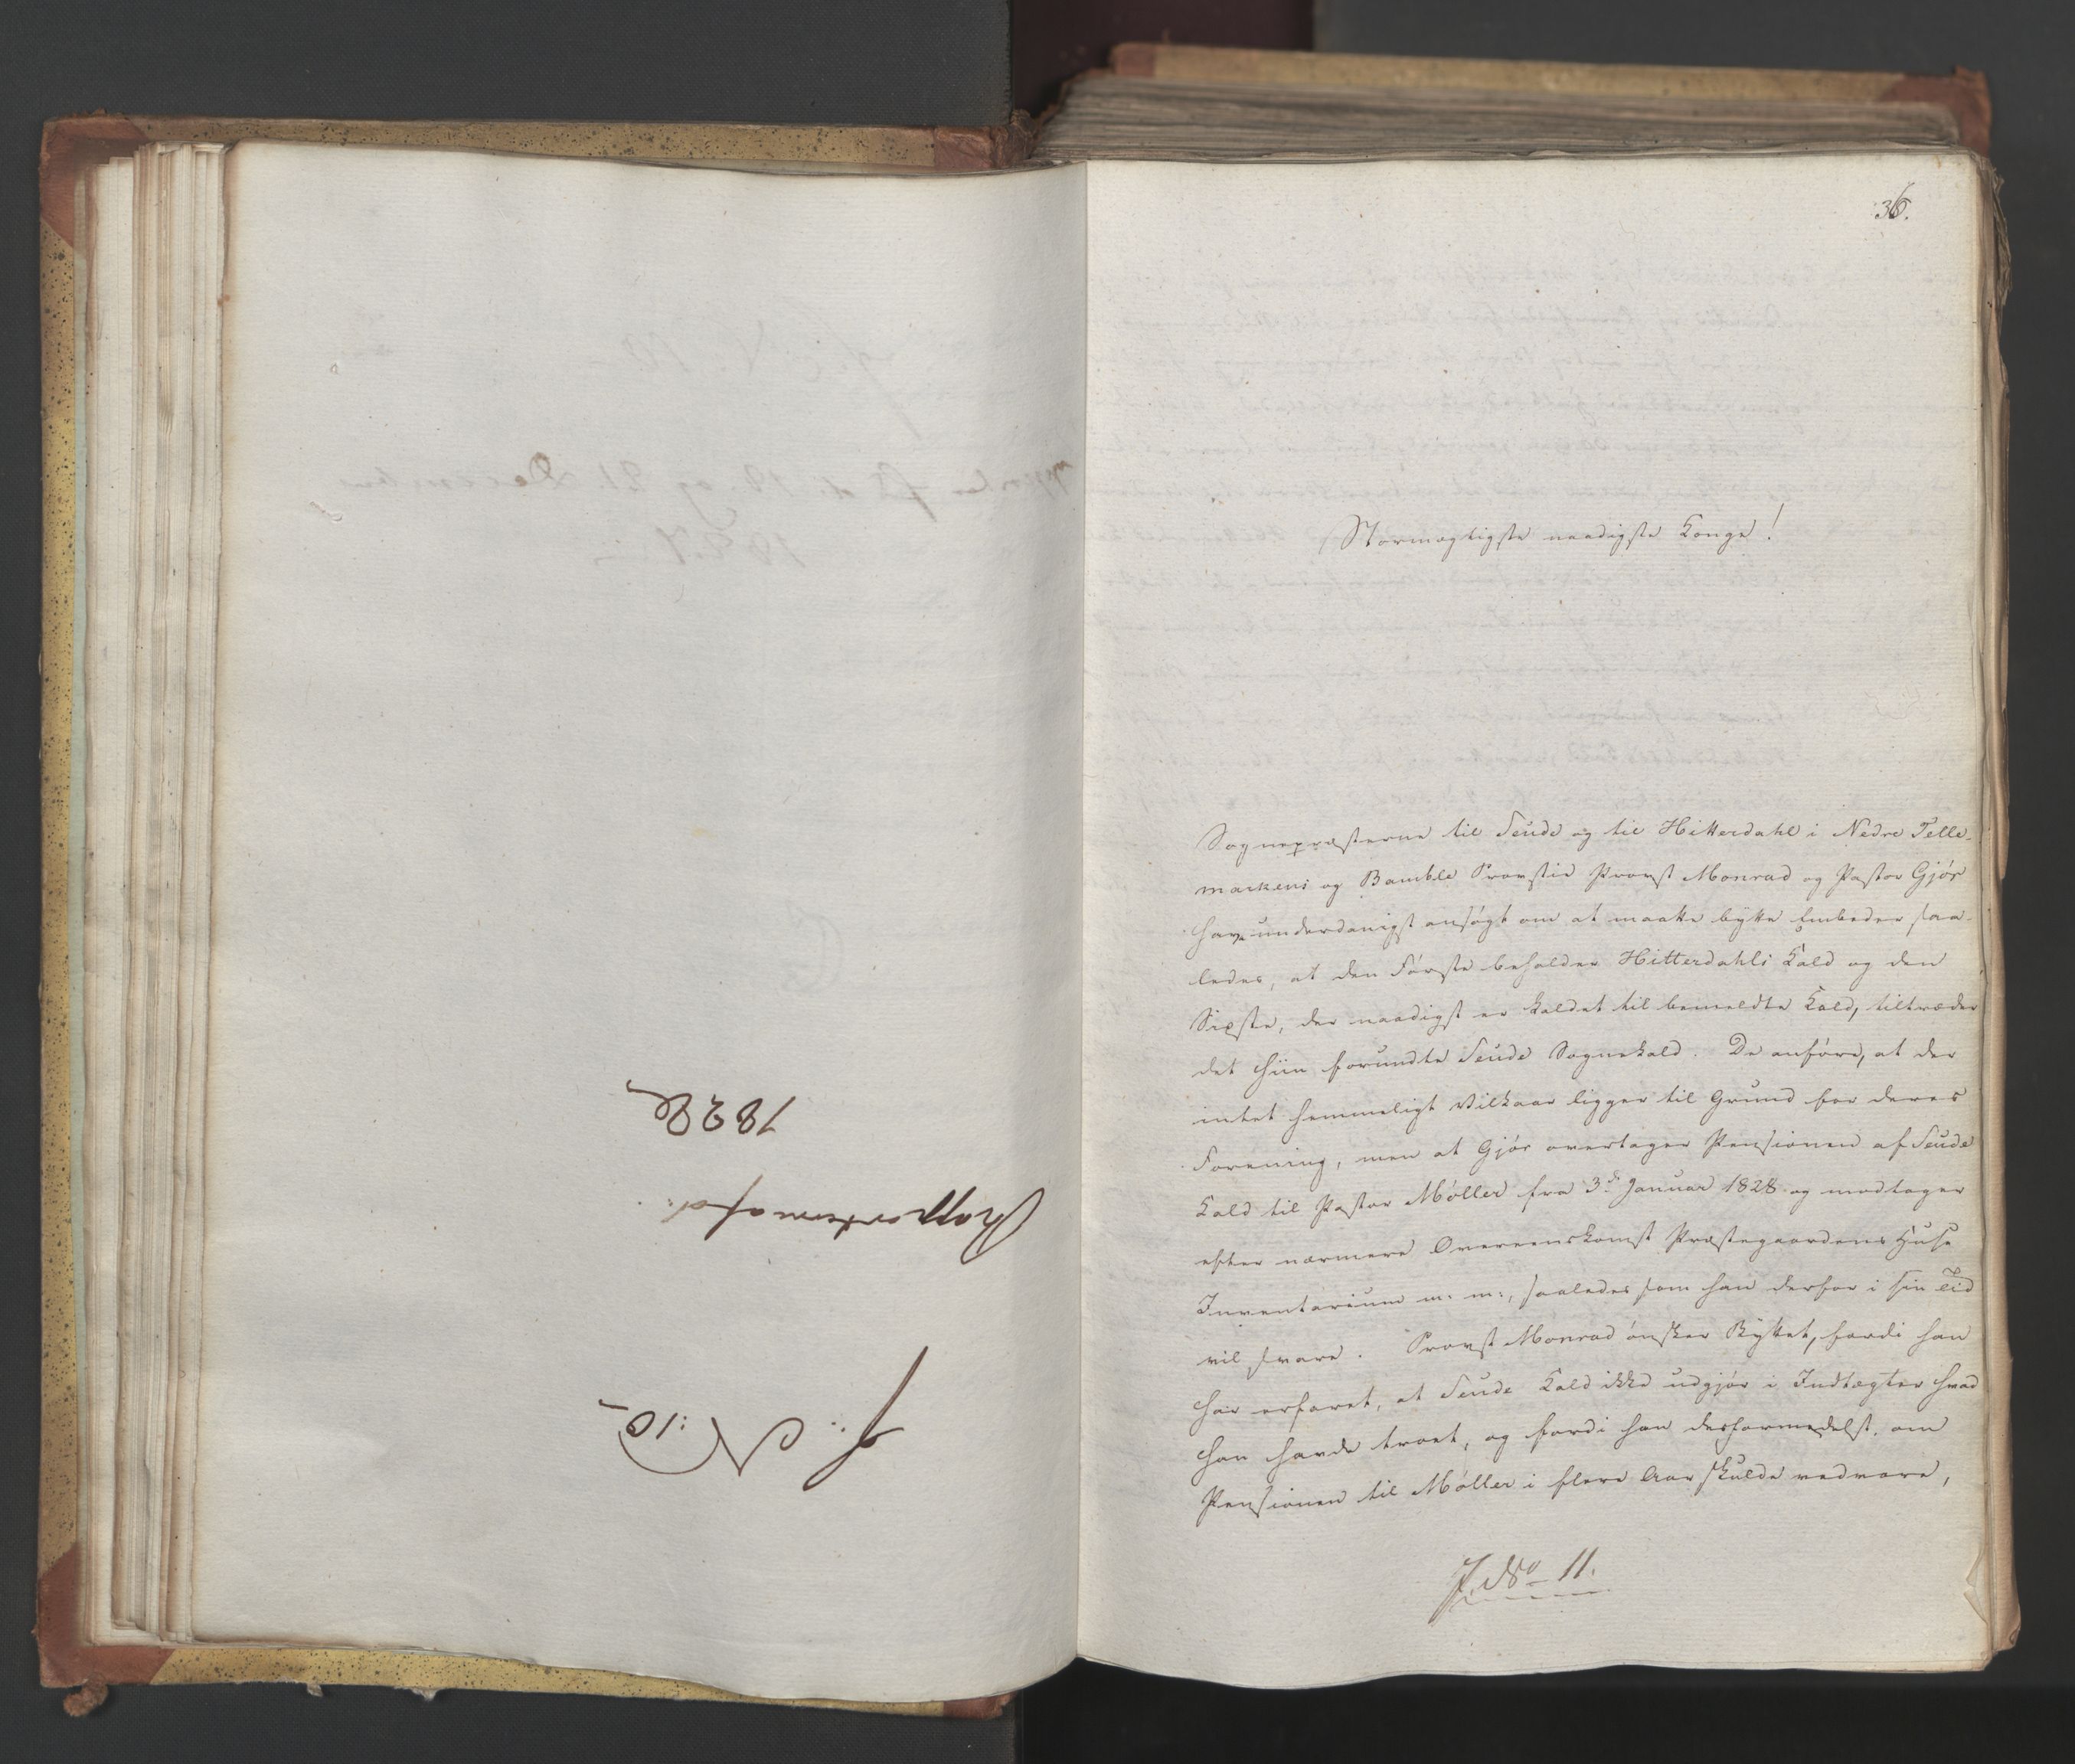 J: N: 10
Rapporteres fol:
1828
36.
Stormægtigste naadigste Konge!
Sognepræsterne til Seude og til Hitterdahl i Nedre Telle-
markens og Bamble Provstie Provst Monrad og Pastor Gjør
have underdanigst ansøgt om at maatte bytte Embeder saa-
ledes, at den Første beholder Hitterdahls Kald og den
Sidste, der naadigst er kaldet til bemeldte Kald, tiltræder
det hiin forundte Seude Sognekald. De anføre, at der
intet hemmeligt Vilkaar ligger til Grund for deres
Forening, men at Gjør overtager Pensionen af Seude
Kald til Pastor Møller fra 3de Januar 1828 og modtager
efter nærmere Overeenskomst Præstegaardens Huse
Inventarium m: m:, saaledes som han derfor i sin Tid
vil svare. Provst Monrad ønsker Byttet, fordi han
har erfaret, at Seude Kald ikke udgjør i Indtægter hvad
han havde troet, og fordi han desformedelst, om
Pensionen til Møller i flere Aar skulde vedvare,
J. No 11.